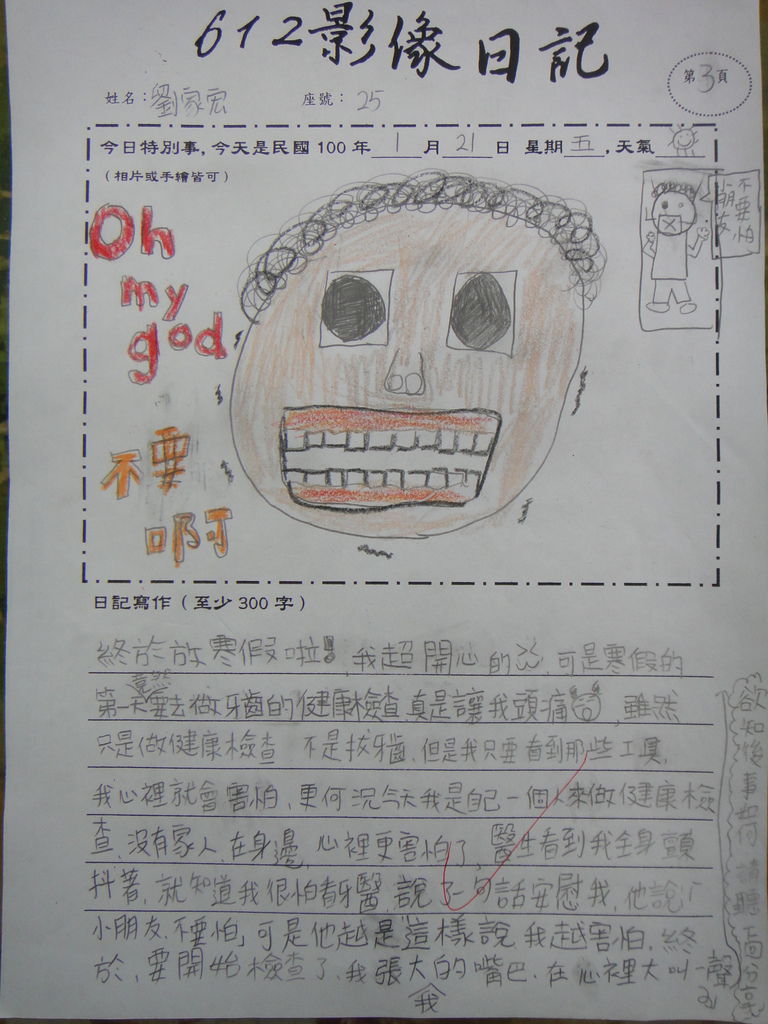 612影像日記
第3頁
姓名：劉家宏 座號：25
今日特別事，今天是民國 100 年 1 月 21 日 星期五，天氣
（相片或手繪皆可）
不要怕
小朋友
Oh
my
god
不要
啊
日記寫作（至少 300 字）
終於放寒假啦！我超開心的，可是寒假的
第一天竟然要去做牙齒的健康檢查真是讓我頭痛，雖然
只是做健康檢查 不是拔牙齒，但是我只要看到那些工具，
我心裡就會害怕，更何況今天我是自己一個人來做健康檢
查，沒有家人在身邊，心裡更害怕了，醫生看到我全身顫
抖著，就知道我很怕看牙醫，說了一句話安慰我，他說「
小朋友不要怕」可是他越是這樣說 我越害怕，終
於，要開始檢查了，我張大我的嘴巴，在心裡大叫一聲
欲知後事如何 請聽下回分享